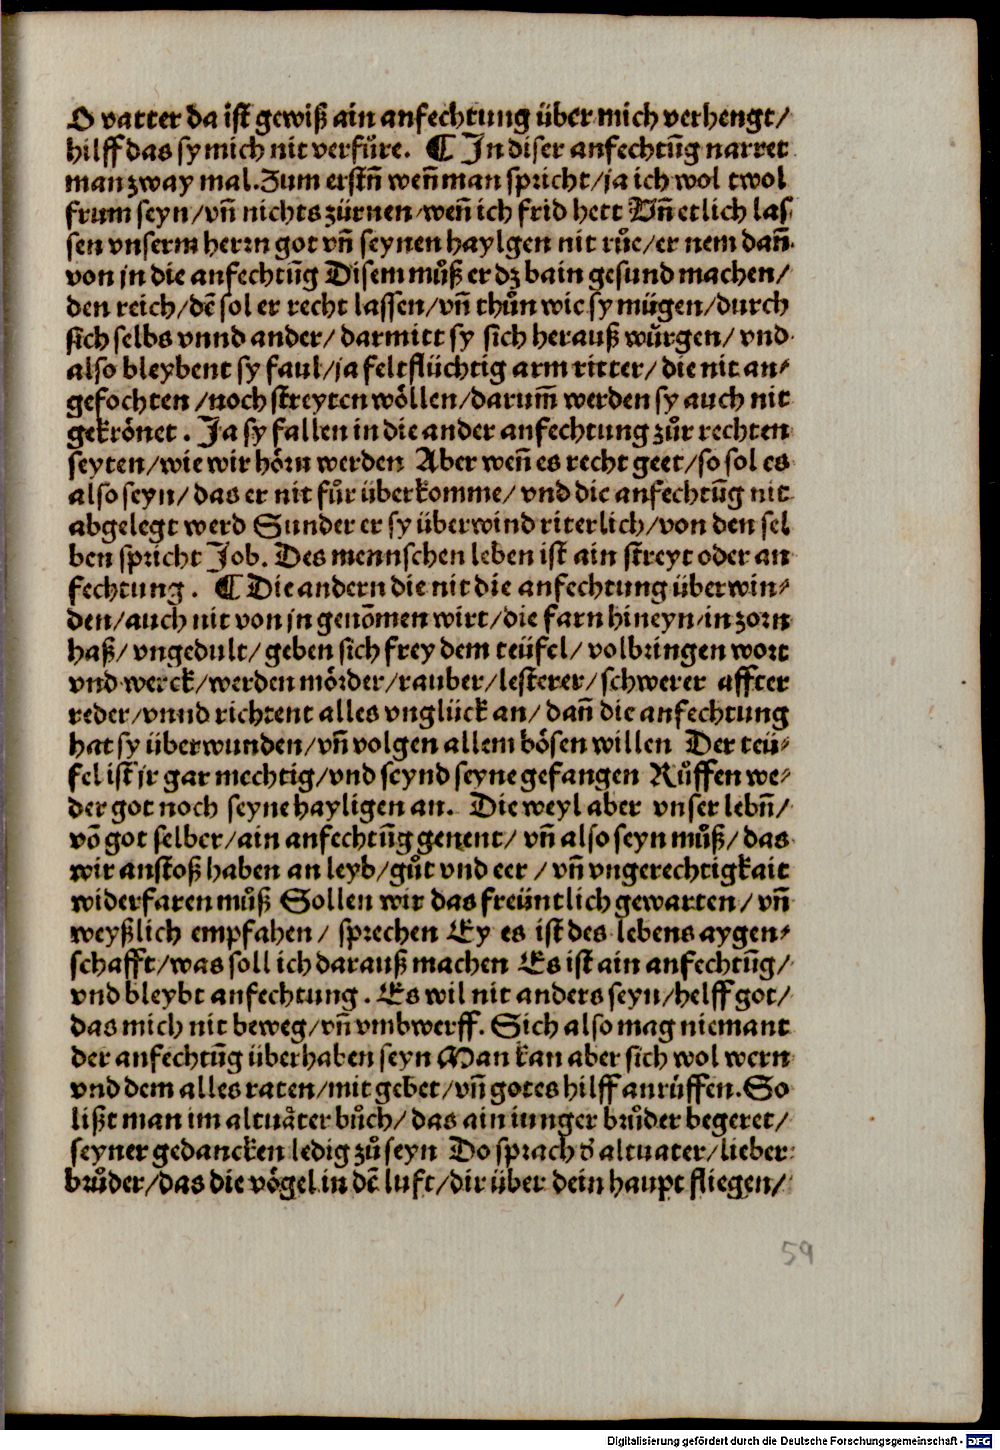 O vatter da ist gewiß ain anfechtung über mich verhengt/
hilff das sy mich nit verfůre. ¶ In diser anfechtūg narret
man zway mal. Zum erstn̄ wen̄ man spricht/ja ich wol twol
frum seyn/vn̄ nichts zürnen/wen̄ ich frid hett Vn̄ etlich las
sen vnserm herrn got vn̄ seynen haylgen nit růe/er nem dan̄
von jn die anfechtūg Disem můß er dz bain gesund machen/
den reich/dē sol er recht lassen/vn̄ thůn wie sy mügen/durch
sich selbs vnnd ander/darmitt sy sich herauß wůrgen/vnd
also bleybent sy faul/ja feltflüchtig arm ritter/die nit an-
gefochten/noch streyten wöllen/darum̄ werden sy auch nit
gekrönet. Ja sy fallen in die ander anfechtung zůr rechten
seyten/wie wir hörn werden Aber wen̄ es recht geet/so sol es
also seyn/das er nit fůr überkomme/vnd die anfechtūg nit
abgelegt werd Sunder er sy überwind riterlich/von den sel
ben spricht Job. Des mennschen leben ist ain streyt oder an
fechtung. ¶ Die andern die nit die anfechtung überwin-
den/auch nit von jn genōmen wirt/die farn hineyn/in zorn
haß/vngedult/geben sich frey dem teüfel/volbringen wort
vnd werck/werden mörder/rauber/lesterer/schwerer affter
reder/vnnd richtent alles vnglück an/dan̄ die anfechtung
hat sy überwunden/vn̄ volgen allem bösen willen Der teü-
fel ist jr gar mechtig/vnd seynd seyne gefangen Rüffen we-
der got noch seyne hayligen an. Die weyl aber vnser lebn̄/
vō got selber/ain anfechtūg genent/vn̄ also seyn můß/das
wir anstoß haben an leyb/gůt vnd eer/vn̄ vngerechtigkait
widerfaren můß Sollen wir das freüntlich gewarten/vn̄
weyßlich empfahen/sprechen Ey es ist des lebens aygen-
schafft/was soll ich darauß machen Es ist ain anfechtūg/
vnd bleybt anfechtung. Es wil nit anders seyn/helff got/
das mich nit beweg/vn̄ vmbwerff. Sich also mag niemant
der anfechtūg überhaben seyn Man kan aber sich wol wern
vnd dem alles raten/mit gebet/vn̄ gotes hilff anrüffen. So
lißt man im altuäter bůch/das ain iunger brůder begeret/
seyner gedancken ledig zů seyn Do sprach d̓ altuater/lieber
brůder/das die vögel in dē luft/dir über dein haupt fliegen/
59
Digitalisierung gefördert durch die Deutsche Forschungsgemeinschaft - DFG